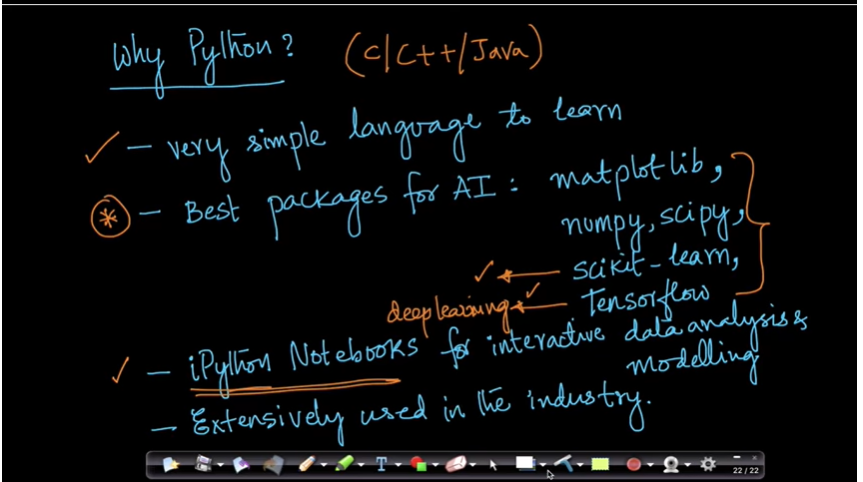 Why Python? (C/C++/Java)
✓ - very simple language to learn
* - Best packages for AI: matplotlib,
numpy, scipy,
✓ ← scikit-learn,
deep learning ✓ ← Tensorflow
✓ - iPython Notebooks for interactive data analysis &
modelling
- Extensively used in the industry.
T
22 / 22